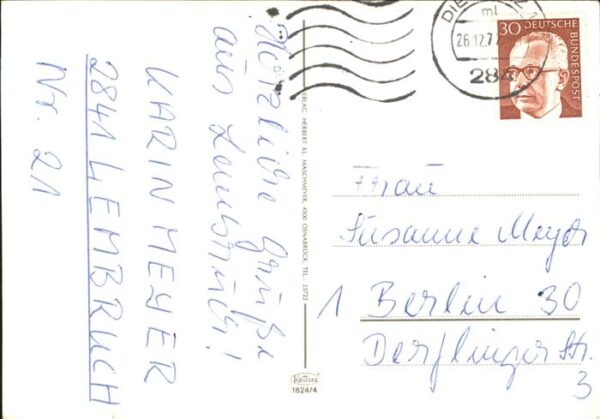 Herzliche Grüße
aus Lembruch!
KARIN MEYER
2841 LEMBRUCH
Nr. 21
VERLAG HERBERT KL. MASCHMEYER, 4500 OSNABRÜCK, TEL. 23722
Krüger
1624/4
26.12.7
284
30 DEUTSCHE
BUNDESPOST
Frau
Susanne Meyer
1 Berlin 30
Derflinger Str.
3